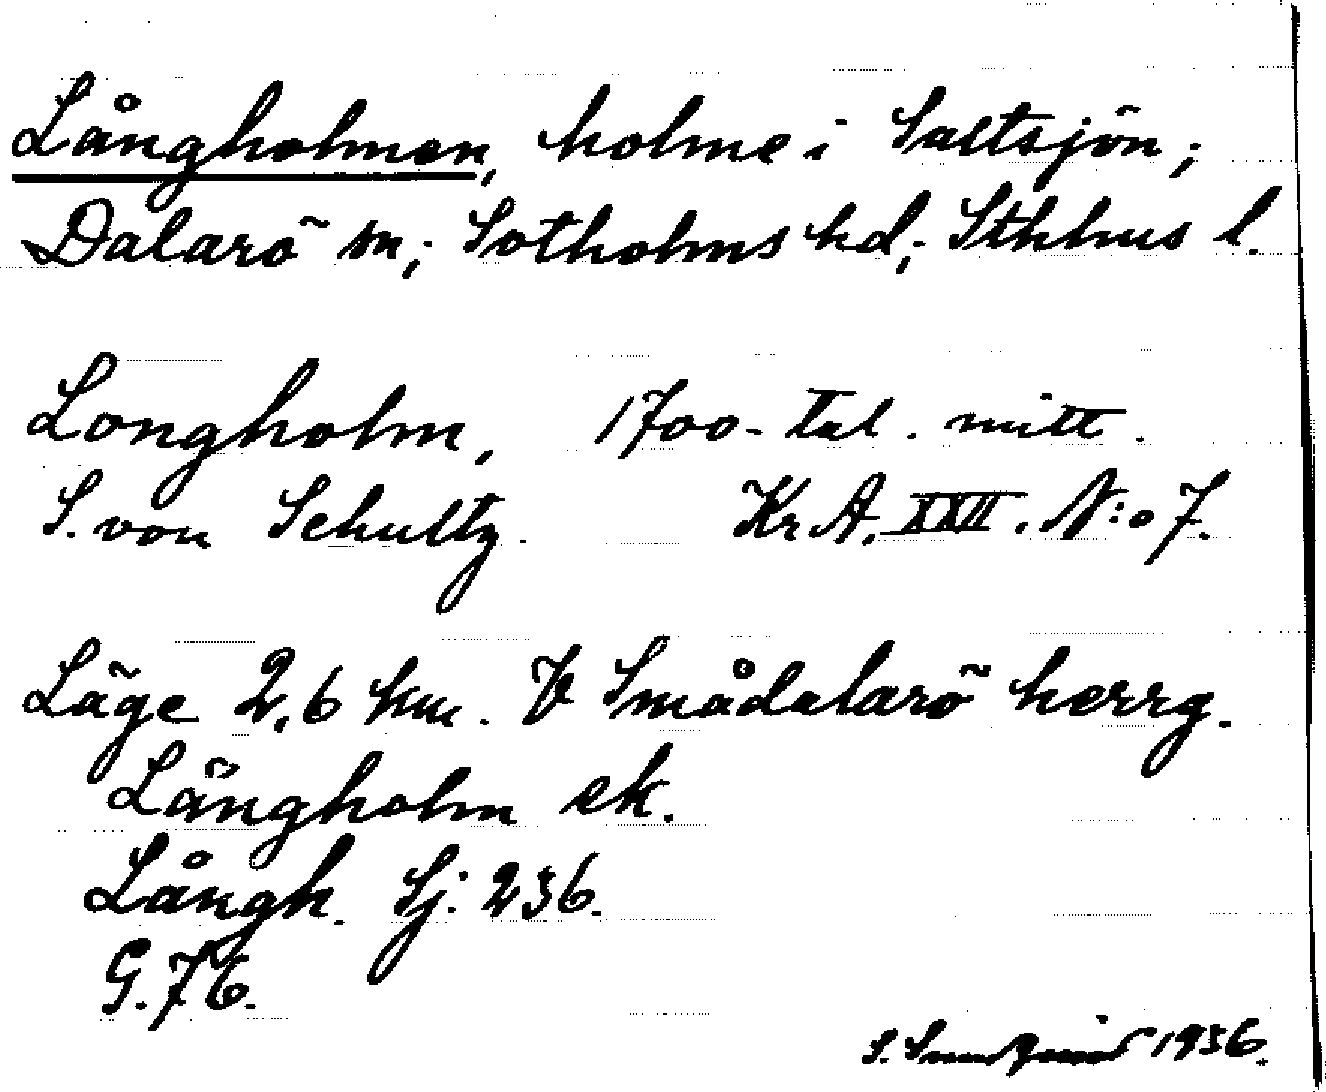 Långholmen, holme i Saltsjön;
Dalarö sn; Sotholms hd; Sthhus l.
Longholm, 1700-tal. mitt.
S. von Schultz. Kr A. XXII. N:o 7.
Läge 2,6 km. V Smådalarö herrg.
Långholm ek.
Långh. Sj: 236.
G. 76.
S. 1936.